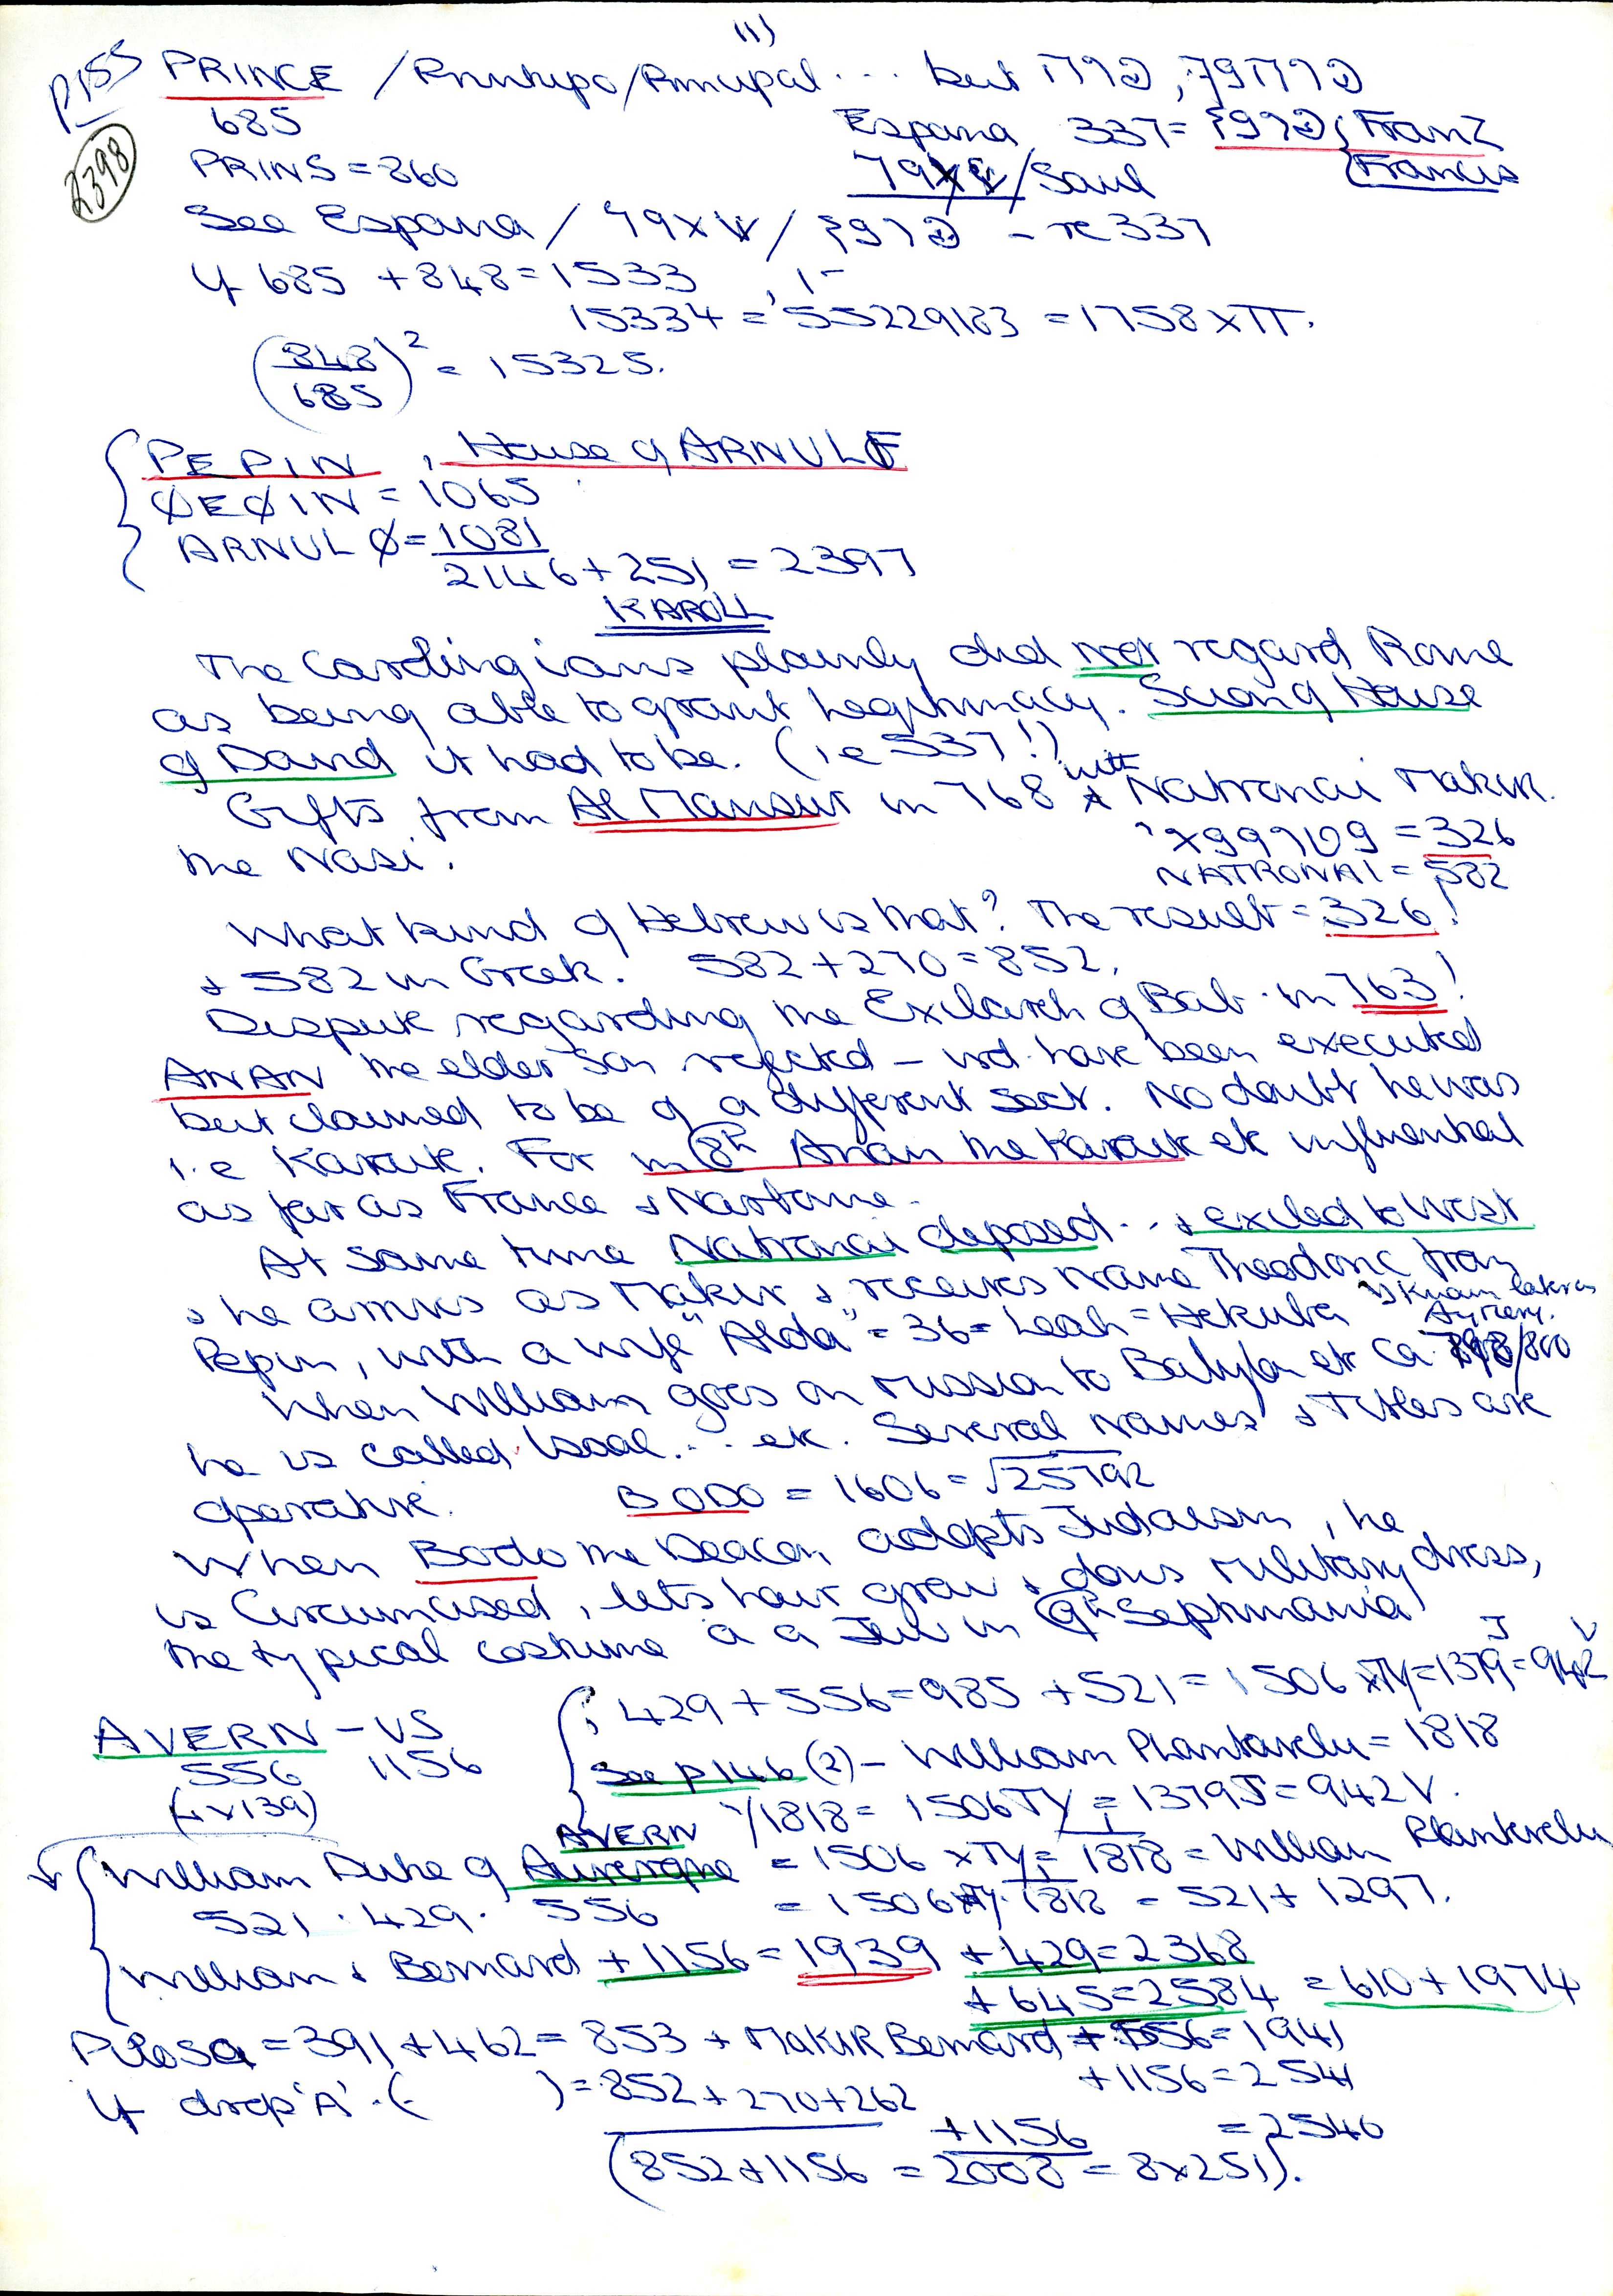 11)
p155 PRINCE / Prinkipo/Principal ... but
685
Espana 337 = Franz
2398
PRINS = 360
/Saul
Francis
See Espana / - re 337
If 685 + 848 = 1533
15334 = 55229183 = 1758 x π.
(848/685)² = 15325.
PEPIN, House of ARNULF
ØEØIN = 1065
ARNULØ = 1081
2146 + 251 = 2397
KAROLL
The Carolingians plainly did not regard Rome
as being able to grant legitimacy. Scion of House
of David it had to be. (ie 537!)
Gifts from Al Mansur in 768 with Natronai Makir.
the Nasi.
= 326
NATRONAI = 582
What kind of Hebrew is that? The result = 326!
+ 582 in Greek. 582 + 270 = 852.
Dispute regarding the Exilarch of Bab. in 763!
ANAN the elder son rejected – wd. have been executed
but claimed to be of a different sect. No doubt he was
i.e Karaite. For in 8th Anan the Karaite etc influential
as far as France & Narbonne.
At same time Natronai deposed... & exiled to West
& he arrives as Makir & receives name Theodoric from
Pepin, with a wife "Alda" = 36 = Leah = Hekuba
Aymery.
When William goes on mission to Babylon etc ca. 798/800
he is called Isaac... etc. Several names & Titles are
operative. BODO = 1606 = √25792
When Bodo the Deacon adopts Judaism, he
is Circumcised, lets hair grow & dons military dress,
the typical costume a a Jew in 9th Septimania
429 + 556 = 985 + 521 = 1506 x TY = 1379 J = 942 V
AVERN - US
556 1156
(4 x 139)
See p146 (2) – William Plantavelu = 1818
1818 = 1506 TY = 1379 J = 942 V.
AVERN
William Duke of Auvergne = 1506 x TY = 1818 = William Plantevelu
521 . 429 . 556 = 1506 TY. 1818 = 521 + 1297.
William & Bernard + 1156 = 1939 + 429 = 2368
+ 645 = 2584 = 610 + 1974
Pilosa = 391 + 462 = 853 + MAKIR Bernard + 556 = 1941
+ 1156 = 2541
If drop 'A' . ( ) = 852 + 270 + 262
+ 1156 = 2540
(852 + 1156 = 2008 = 8 x 251).